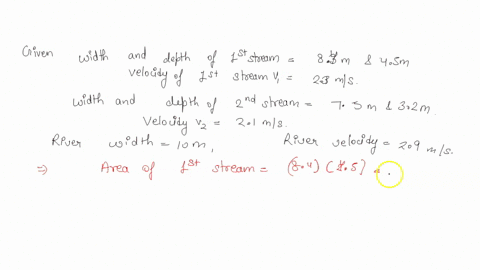 Given width and depth of 1st stream = m & 4.5m
velocity of 1st stream V₁ = 2.3 m/s.
width and depth of 2nd stream = m & 3.2m.
Velocity v₂ = 2.1 m/s.
River width = 10m, River velocity = 2.9 m/s.
⇒ Area of 1st stream = =